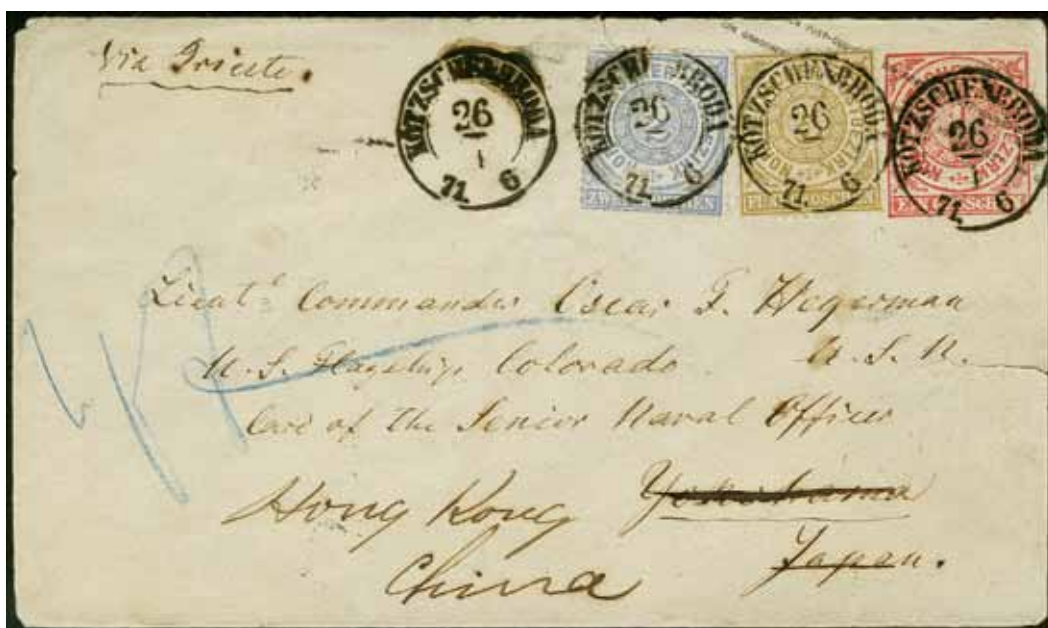 Via Trieste.
KÖTZSCHENBRODA
26
1
71. 6
KÖTZSCHENBRODA
26
71. 6
KÖTZSCHENBRODA
26
71. 6
KÖTZSCHENBRODA
26
1
71. 6
ZWEI GROSCHEN
FÜNF GROSCHEN
EIN GROSCHEN
Lieut Commander Oscar F. Hegerman
U.S. Flagship Colorado U.S.N.
Care of the Senior Naval Officer
Hong Kong Yokohama
China Japan.